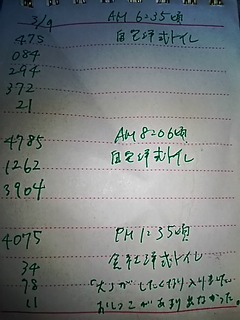 3/9 AM 6:35頃
475 自宅洋式トイレ
084
294
372
21
4785 AM 8:06頃
1262 自宅洋式トイレ
3904
4075 PM 1:35頃
34 会社洋式トイレ
78 「大」がしたくなり入りました。
11 おしっこがあまり出なかった。